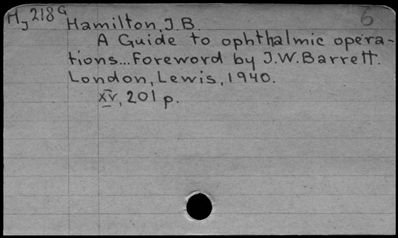 Hj 218G
6
Hamilton, J.B.
A Guide to ophthalmic opera-
tions...Foreword by J.W.Barrett.
London, Lewis, 1940.
xv, 201 p.